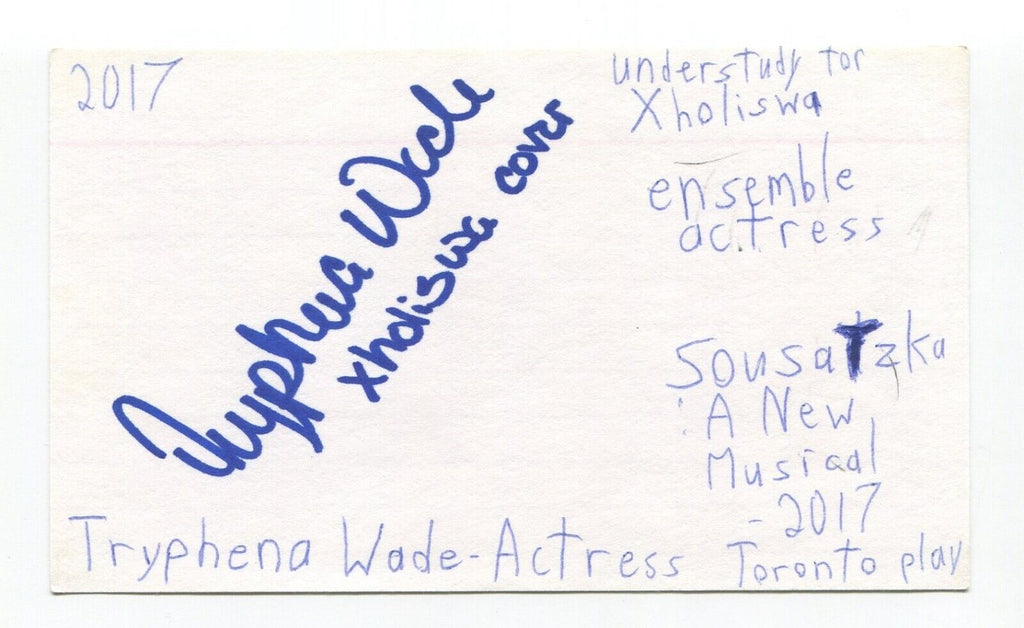 2017
understudy for
Xholiswa
ensemble
actress
Tryphena Wade
Xholiswa cover
Sousatzka
: A New
Musical
- 2017
Toronto play
Tryphena Wade-Actress